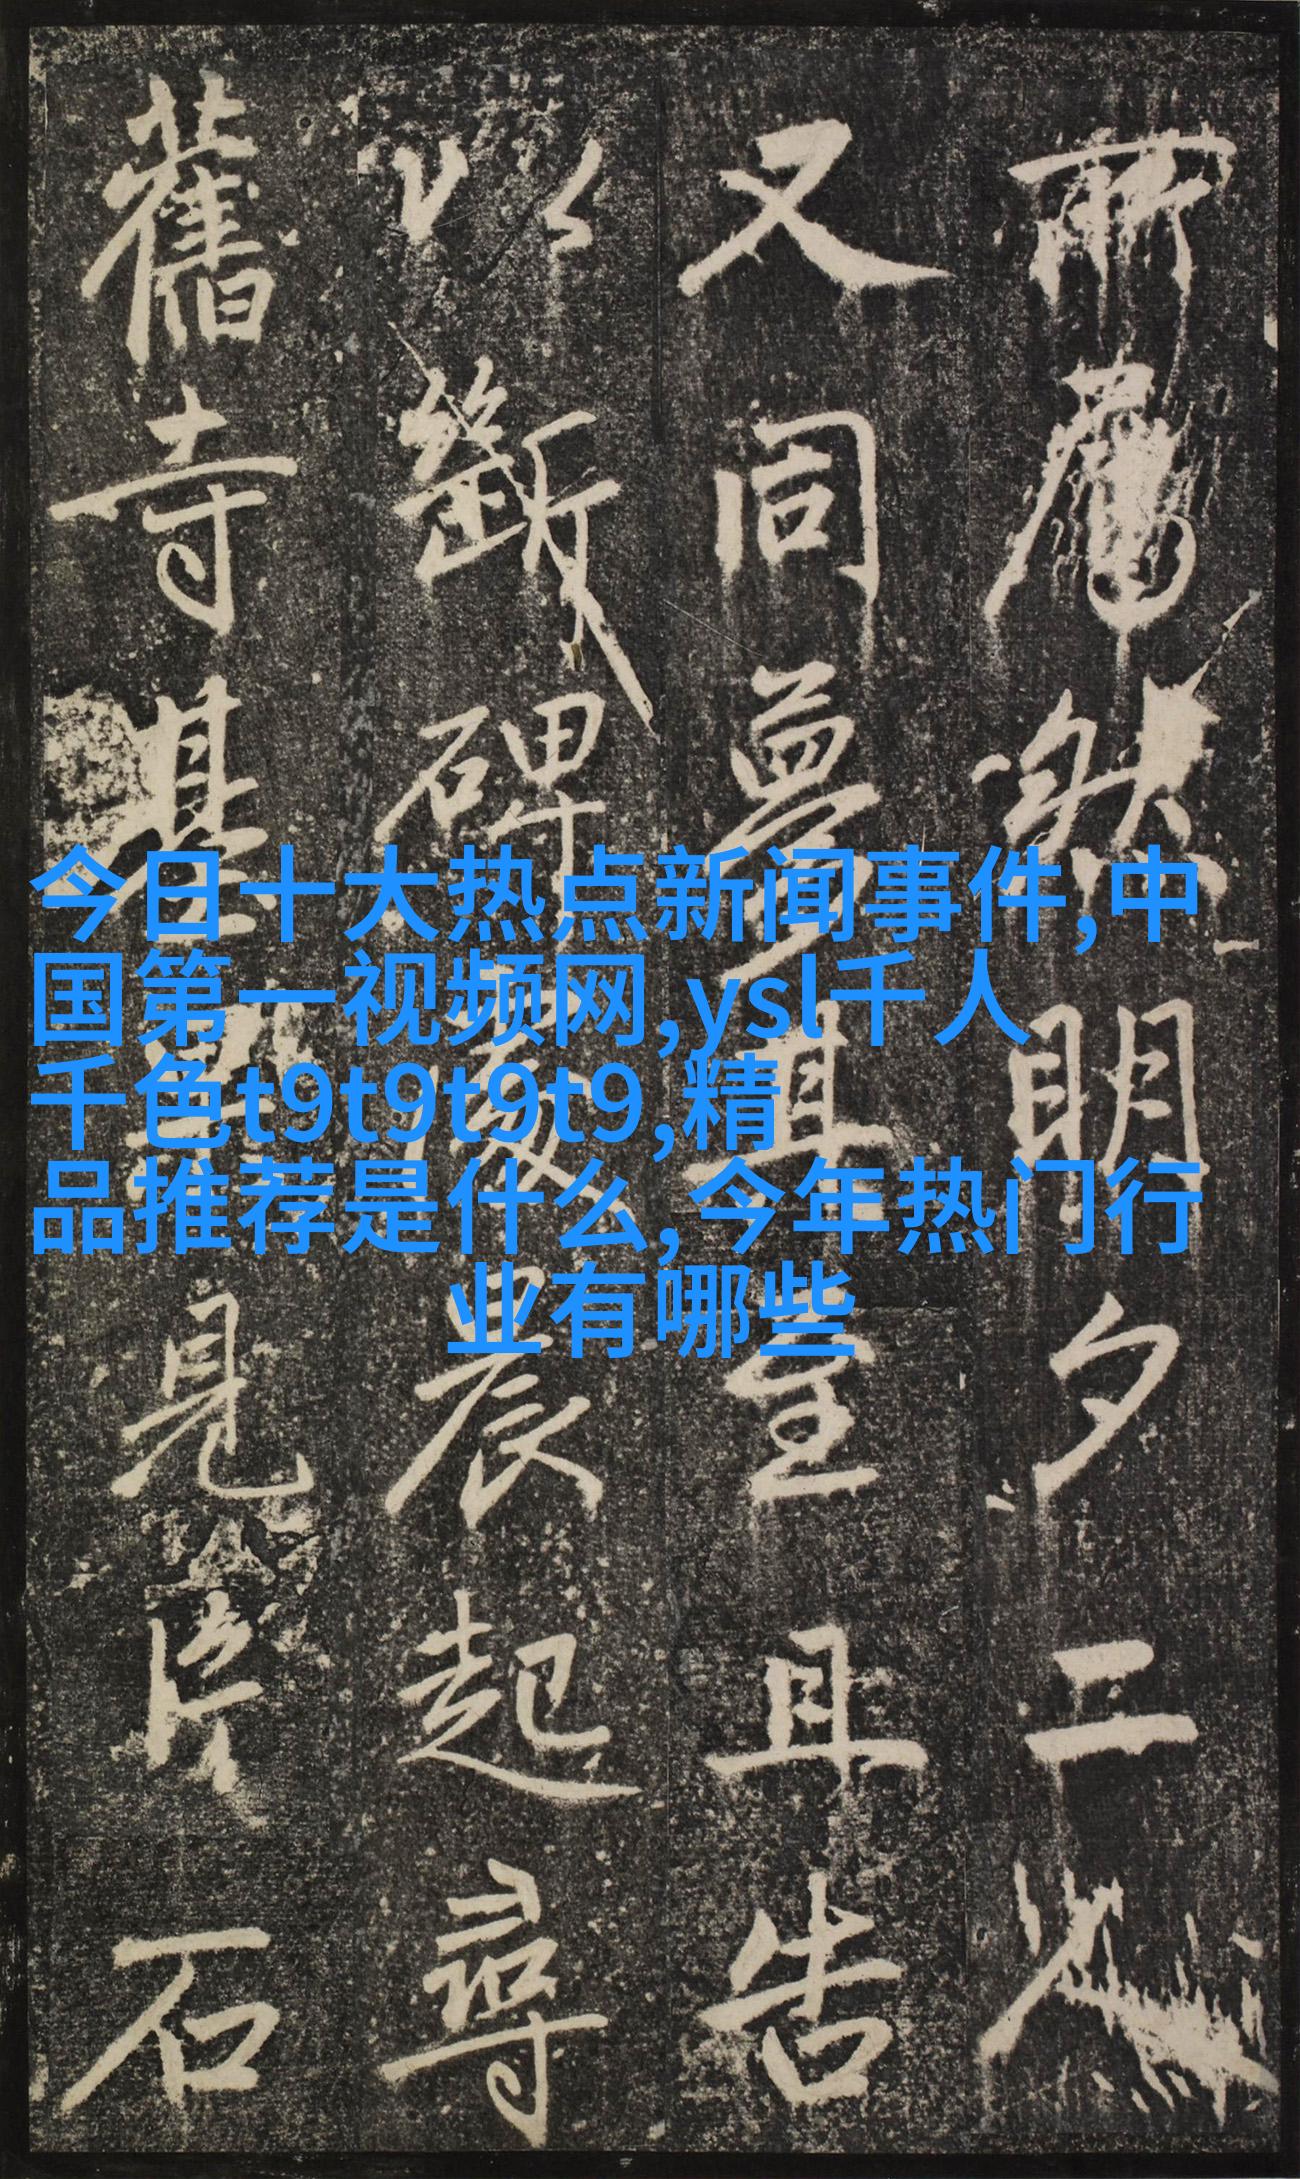 然明夕二
又同夢其至且告
以斷碑晨起尋
舊寺基見片石
今日十大热点新闻事件,中
国第一视频网,ysl千人
千色t9t9t9t9,精
品推荐是什么,今年热门行
业有哪些